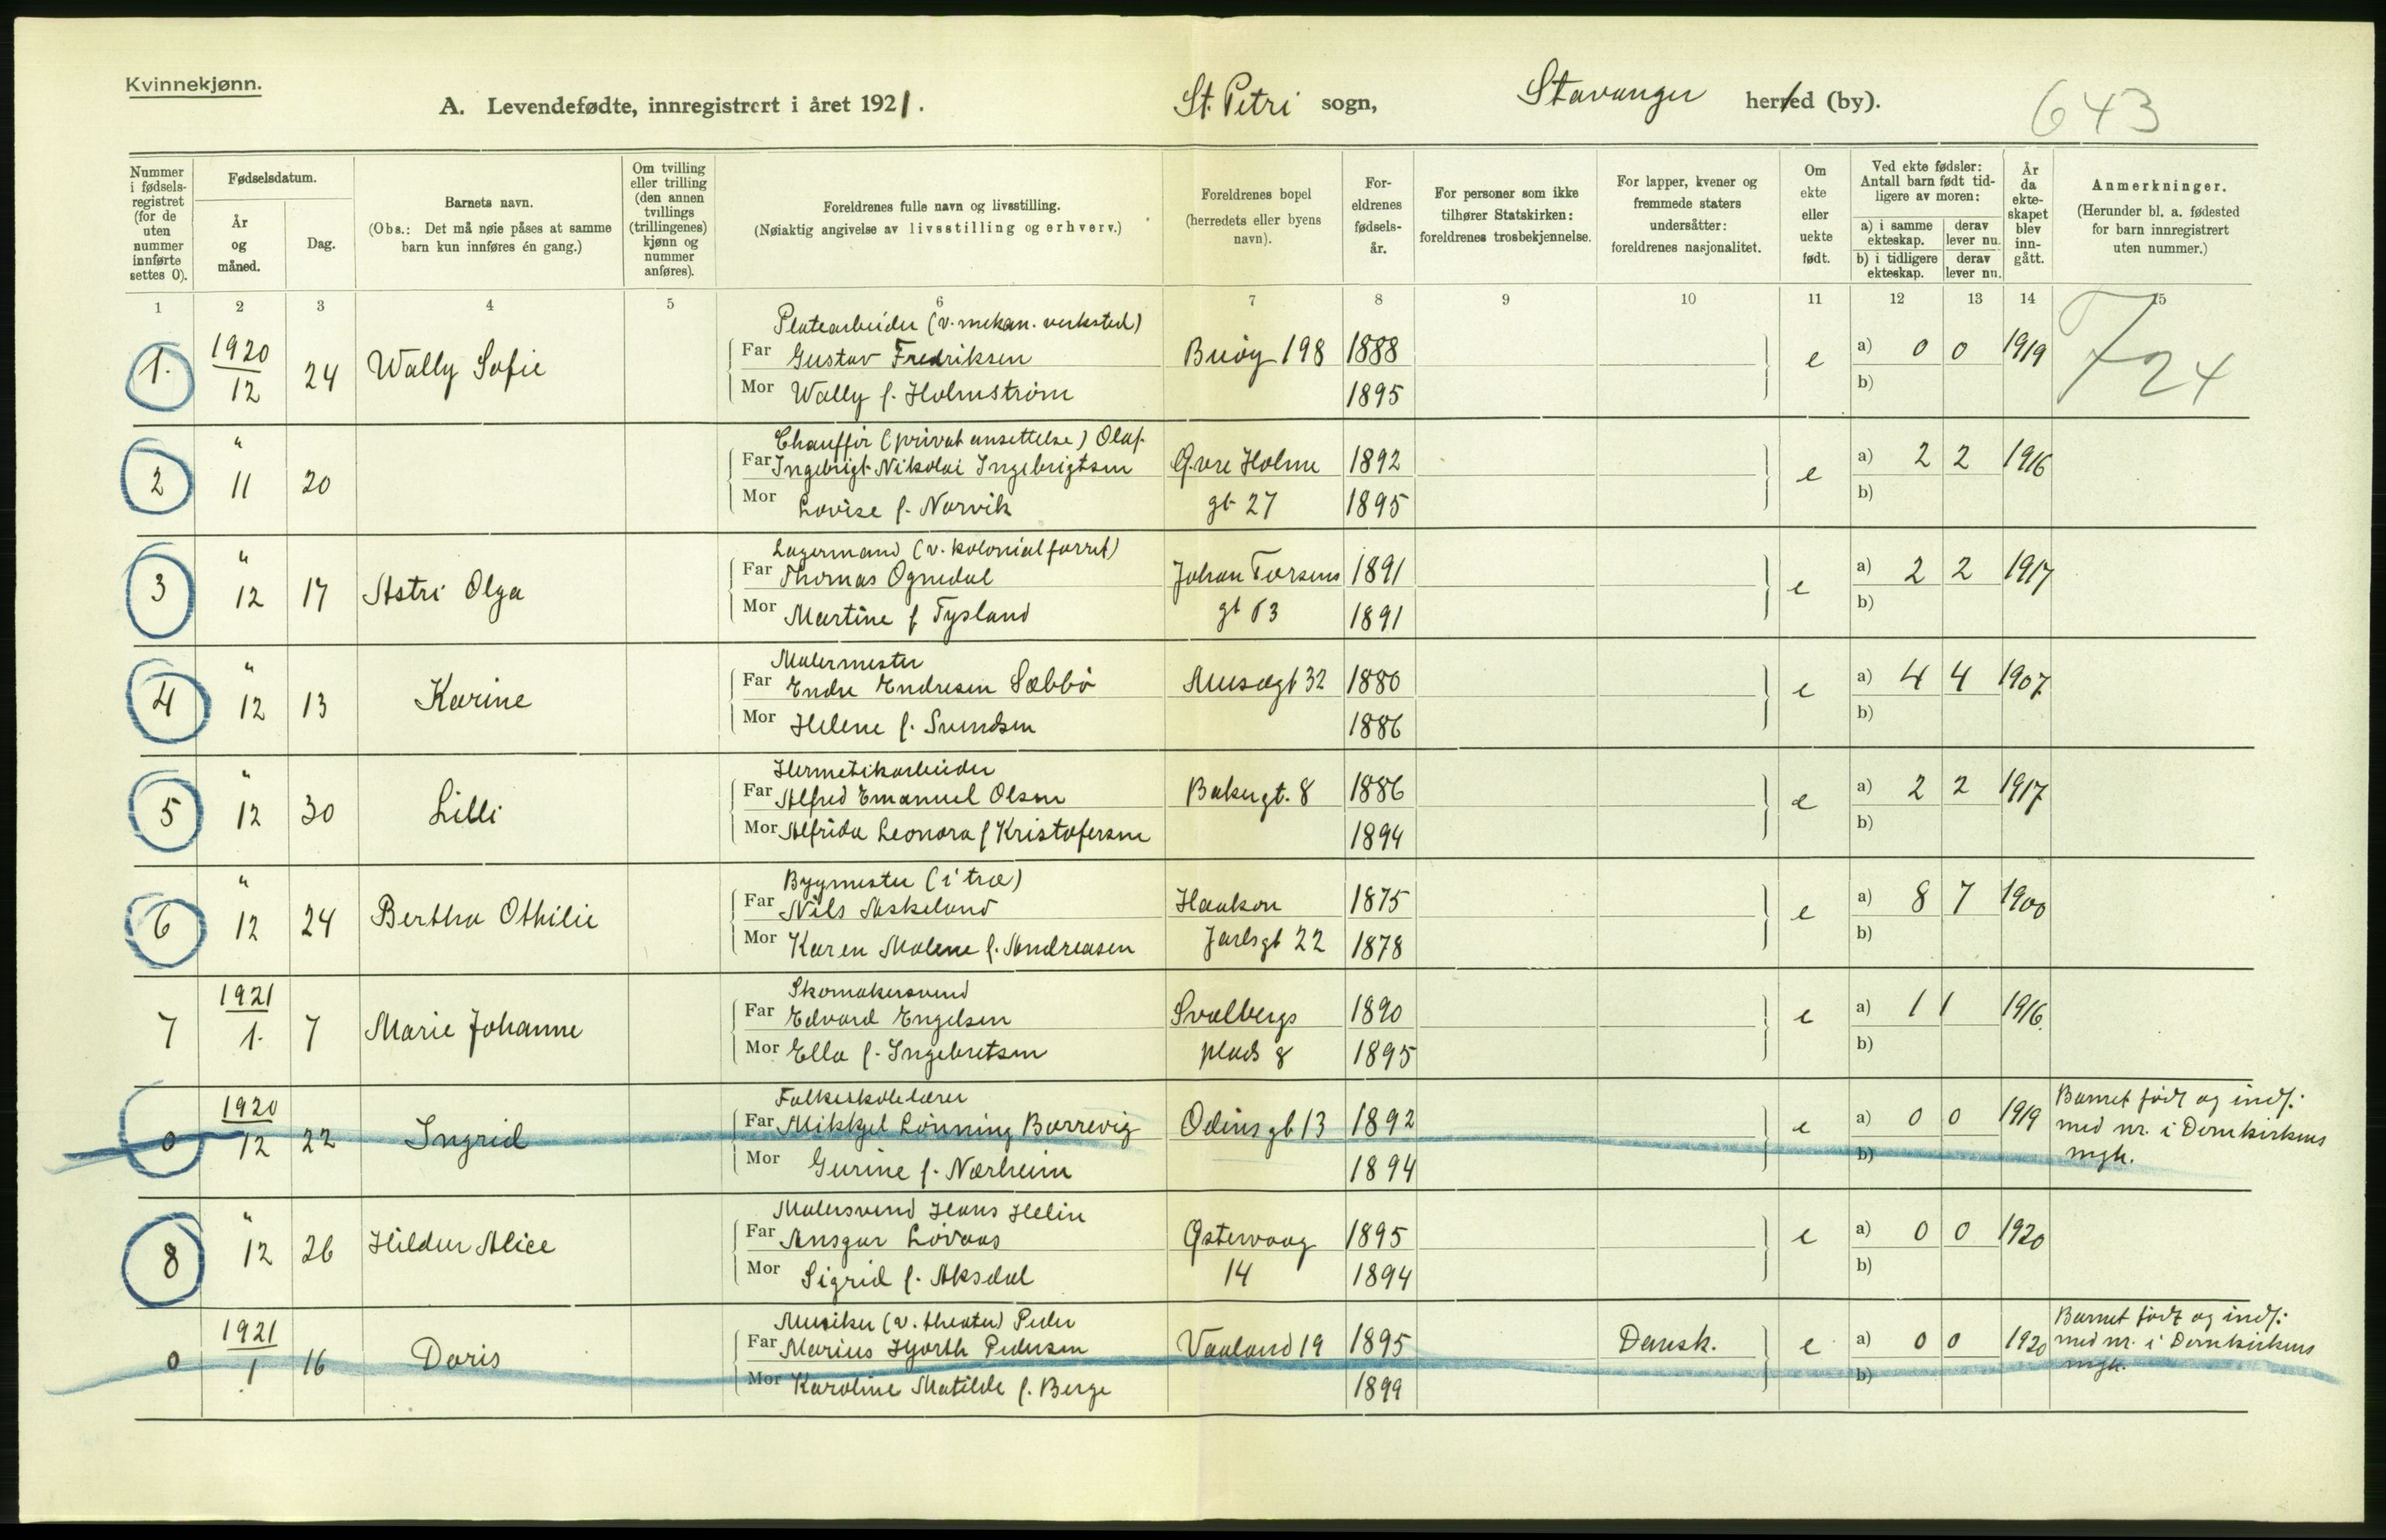 Kvinnekjønn.
A. Levendefødte, innregistrert i året 1921.
St. Petri sogn, Stavanger herred (by).
643
Nummer i fødselsregistret (for de uten nummer innførte settes 0).
Fødselsdatum.
År og måned.
Dag.
Barnets navn.
(Obs.: Det må nøie påses at samme barn kun innføres én gang.)
Om tvilling eller trilling (den annen tvillings (trillingenes) kjønn og nummer anføres).
Foreldrenes fulle navn og livsstilling.
(Nøiaktig angivelse av livsstilling og erhverv.)
Foreldrenes bopel (herredets eller byens navn).
Foreldrenes fødselsår.
For personer som ikke tilhører Statskirken: foreldrenes trosbekjennelse.
For lapper, kvener og fremmede staters undersåtter: foreldrenes nasjonalitet.
Om ekte eller uekte født.
Ved ekte fødsler: Antall barn født tidligere av moren:
a) i samme ekteskap. derav lever nu.
b) i tidligere ekteskap. derav lever nu.
År da ekteskapet blev inngått.
Anmerkninger.
(Herunder bl. a. fødested for barn innregistrert uten nummer.)
1 2 3 4 5 6 7 8 9 10 11 12 13 14 15
Platearbeider (v. mekan. verksted)
1. 1920 12 24 Wally Sofie Far Gustav Fredriksen Buøy 198 1888 e a) 0 0 1919 724
Mor Wally f. Holmstrøm 1895 b)
Chauffør (privat ansettelse) Olaf
2 " 11 20 Far Ingebrigt Nikolai Ingebrigtsen Øvre Holme 1892 e a) 2 2 1916
Mor Lovise f. Norvik gt 27 1895 b)
Lagermand (v. kolonialforret)
3 " 12 17 Astri Olga Far Thomas Ognedal Johan Torsens 1891 e a) 2 2 1917
Mor Martine f Tysland gt 1891 b)
Malermester
4 " 12 13 Karine Far Endre Endresen Sæbbø Musegt 32 1880 e a) 4 4 1907
Mor Helene f. Svendsen 1886 b)
Hermetikarbeider
5 " 12 30 Lilli Far Alfred Emanuel Olsen Bakergt. 8 1886 e a) 2 2 1917
Mor Alfrida Leonora f Kristofersen 1894 b)
Byggmester (i træ)
6 " 12 24 Bertha Othilie Far Nils Askeland Haakon 1875 e a) 8 7 1900
Mor Karen Malene f. Andreasen Jarlsgt 22 1878 b)
Skomakersvend
7 1921 1. 7 Marie Johanne Far Edvard Engelsen Svalbergs 1890 e a) 1 1 1916
Mor Ella f. Ingebretsen plads 8 1895 b)
Folkeskolelærer
0 1920 12 22 Ingrid Far Mikkjel Lönning Borrevig Odinsgt 13 1892 e a) 0 0 1919 Barnet født og indf: med nr. i Domkirkens mgh.
Mor Gurine f. Nærheim 1894 b)
Malersvend Hans Helin
8 " 12 26 Hildur Alice Far Ansgar Lövaas Østervaag 1895 e a) 0 0 1920
Mor Sigrid f. Aksdal 14 1894 b)
Musiker (v. theater) Peder
0 1921 1 16 Doris Far Marius Hjorth Pedersen Vaaland 19 1895 Dansk. e a) 0 0 1920 Barnet født og indf: med nr. i Domkirkens mgh.
Mor Karoline Matilde f. Berge 1899 b)